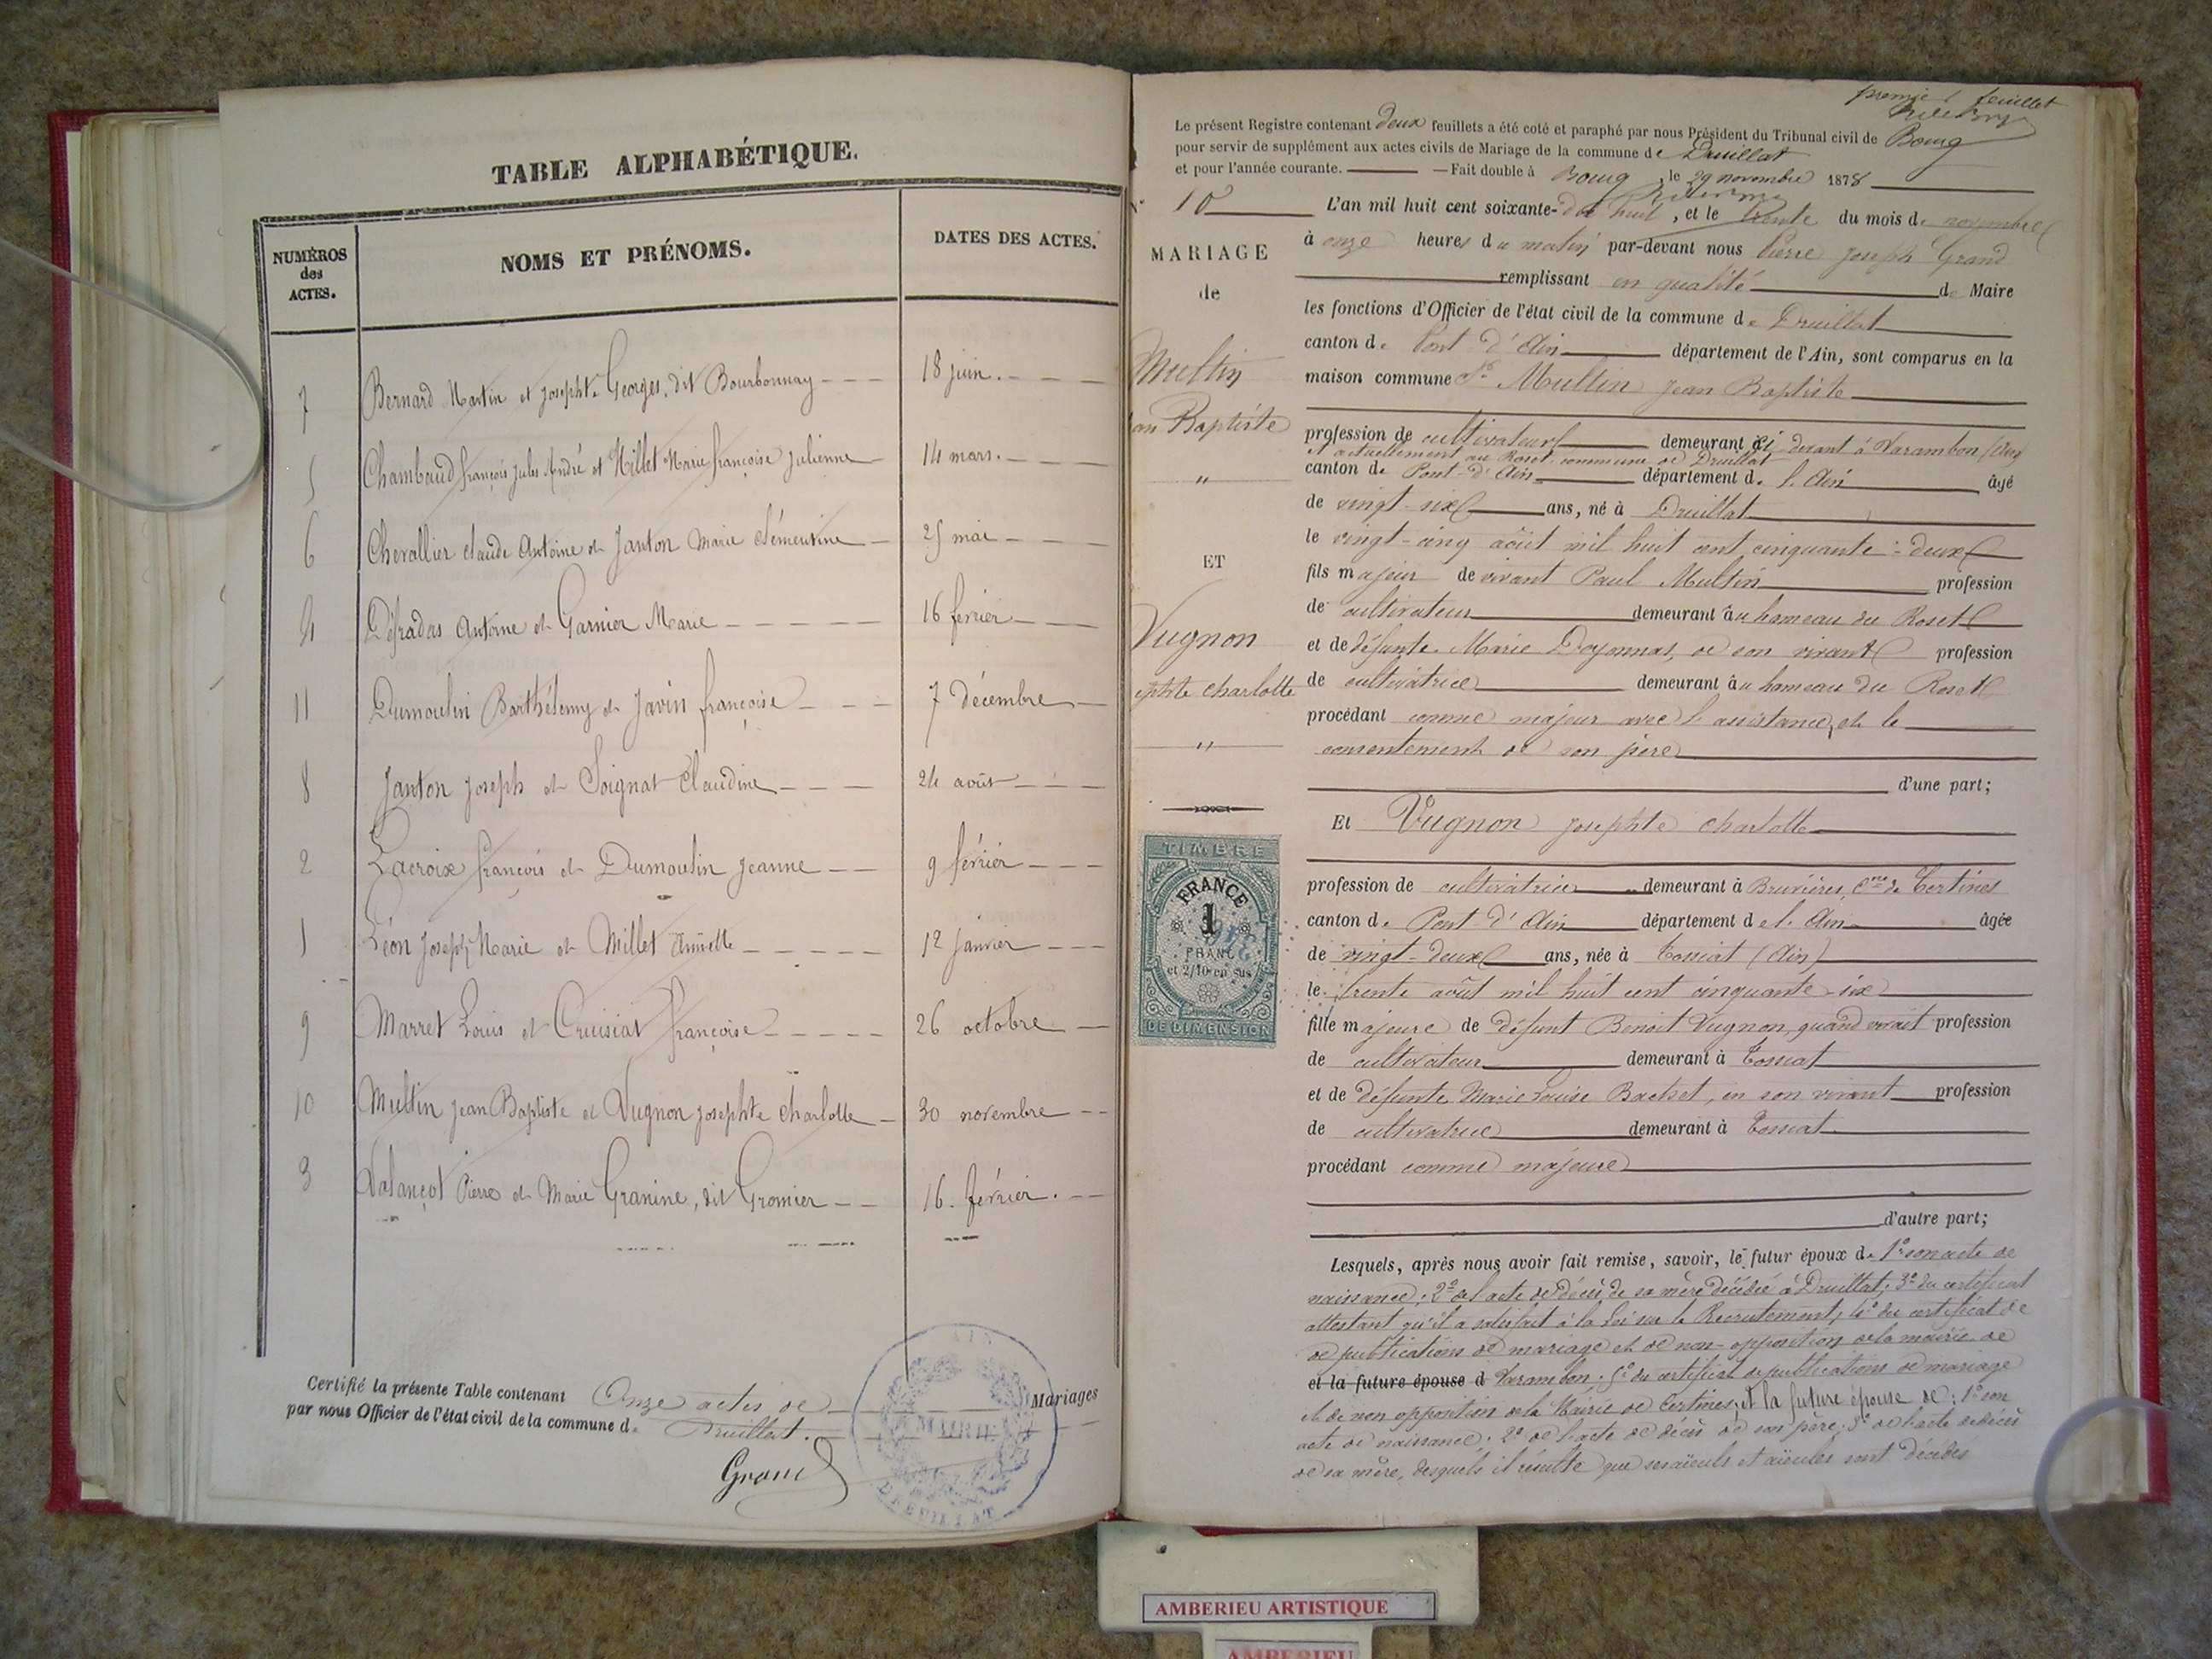 TABLE ALPHABÉTIQUE.
NUMÉROS des ACTES.
NOMS ET PRÉNOMS.
DATES DES ACTES.
7 Bernard Martin et Josephte Georges, dit Bourbonnay 18 juin.
5 Chambaud françois Jules André et Millet Marie françoise Julienne 14 mars.
6 Chevallier claude Antoine et Janton Marie Clémentine 25 mai
4 Desradas Antoine et Garnier Marie 16 février
11 Dumoulin Barthélemy et Javin françoise 7 décembre
8 Janton Joseph et Soignat Claudine 24 août
2 Lacroix françois et Dumoulin Jeanne 9 février
1 Léon Joseph Marie et Millet Annette 12 janvier
9 Marret Louis et Cruisiat françoise 26 octobre
10 Multin Jean Baptiste et Vugnon Josephte Charlotte 30 novembre
3 Valançot Pierre et Marie Granine, dit Gromier 16. février.
Certifié la présente Table contenant Onze actes de Mariages
par nous Officier de l'état civil de la commune de Druillat.
Grand
AIN
MAIRIE
DRUILLAT
premier feuillet
Le présent Registre contenant deux feuillets a été coté et paraphé par nous Président du Tribunal civil de Bourg
pour servir de supplément aux actes civils de Mariage de la commune de Druillat
et pour l'année courante. — Fait double à Bourg, le 29 novembre 1878
10
MARIAGE
de
Multin
an Baptiste
"
ET
Vugnon
ephte charlotte
"
TIMBRE
FRANCE
1
FRANC
et 2/10 en sus
DE DIMENSION
L'an mil huit cent soixante-dix huit, et le trente du mois de novembre
à onze heures du matin par-devant nous Pierre Joseph Grand
remplissant en qualité de Maire
les fonctions d'Officier de l'état civil de la commune de Druillat
canton de Pont d'Ain département de l'Ain, sont comparus en la
maison commune Sr Multin Jean Baptiste
profession de cultivateur demeurant ci devant à Varambon (Ain)
et actuellement au Roset commune de Druillat
canton de Pont-d'Ain département de l'Ain âgé
de vingt-six ans, né à Druillat
le vingt-cinq août mil huit cent cinquante-deux
fils majeur de vivant Paul Multin profession
de cultivateur demeurant au hameau du Roset
et de défunte Marie Doyonnas, de son vivant profession
de cultivatrice demeurant au hameau du Roset
procédant comme majeur avec l'assistance, et le
consentement de son père
d'une part;
Et Vugnon Josephte charlotte
profession de cultivatrice demeurant à Bruvières, Cne de Certines
canton de Pont-d'Ain département de l'Ain âgée
de vingt-deux ans, née à Tossiat (Ain)
le trente août mil huit cent cinquante-six
fille majeure de défunt Benoit Vugnon, quand vivait profession
de cultivateur demeurant à Tossiat
et de défunte Marie Louise Bachet, en son vivant profession
de cultivatrice demeurant à Tossiat
procédant comme majeure
d'autre part;
Lesquels, après nous avoir fait remise, savoir, le futur époux de 1° son acte de
naissance; 2° de l'acte de décès de sa mère décédée à Druillat; 3° du certificat
attestant qu'il a satisfait à la Loi sur le Recrutement; 4° du certificat de
de publications de mariage et de non-opposition de la mairie de
et la future épouse d Varambon; 5° du certificat de publications de mariage
et de non opposition de la Mairie de Certines; et la future épouse de: 1° son
acte de naissance; 2° de l'acte de décès de son père; 3° de l'acte de décès
de sa mère, desquels il résulte que ses aïeuls et aïeules sont décédés
AMBERIEU ARTISTIQUE
AMBERIEU